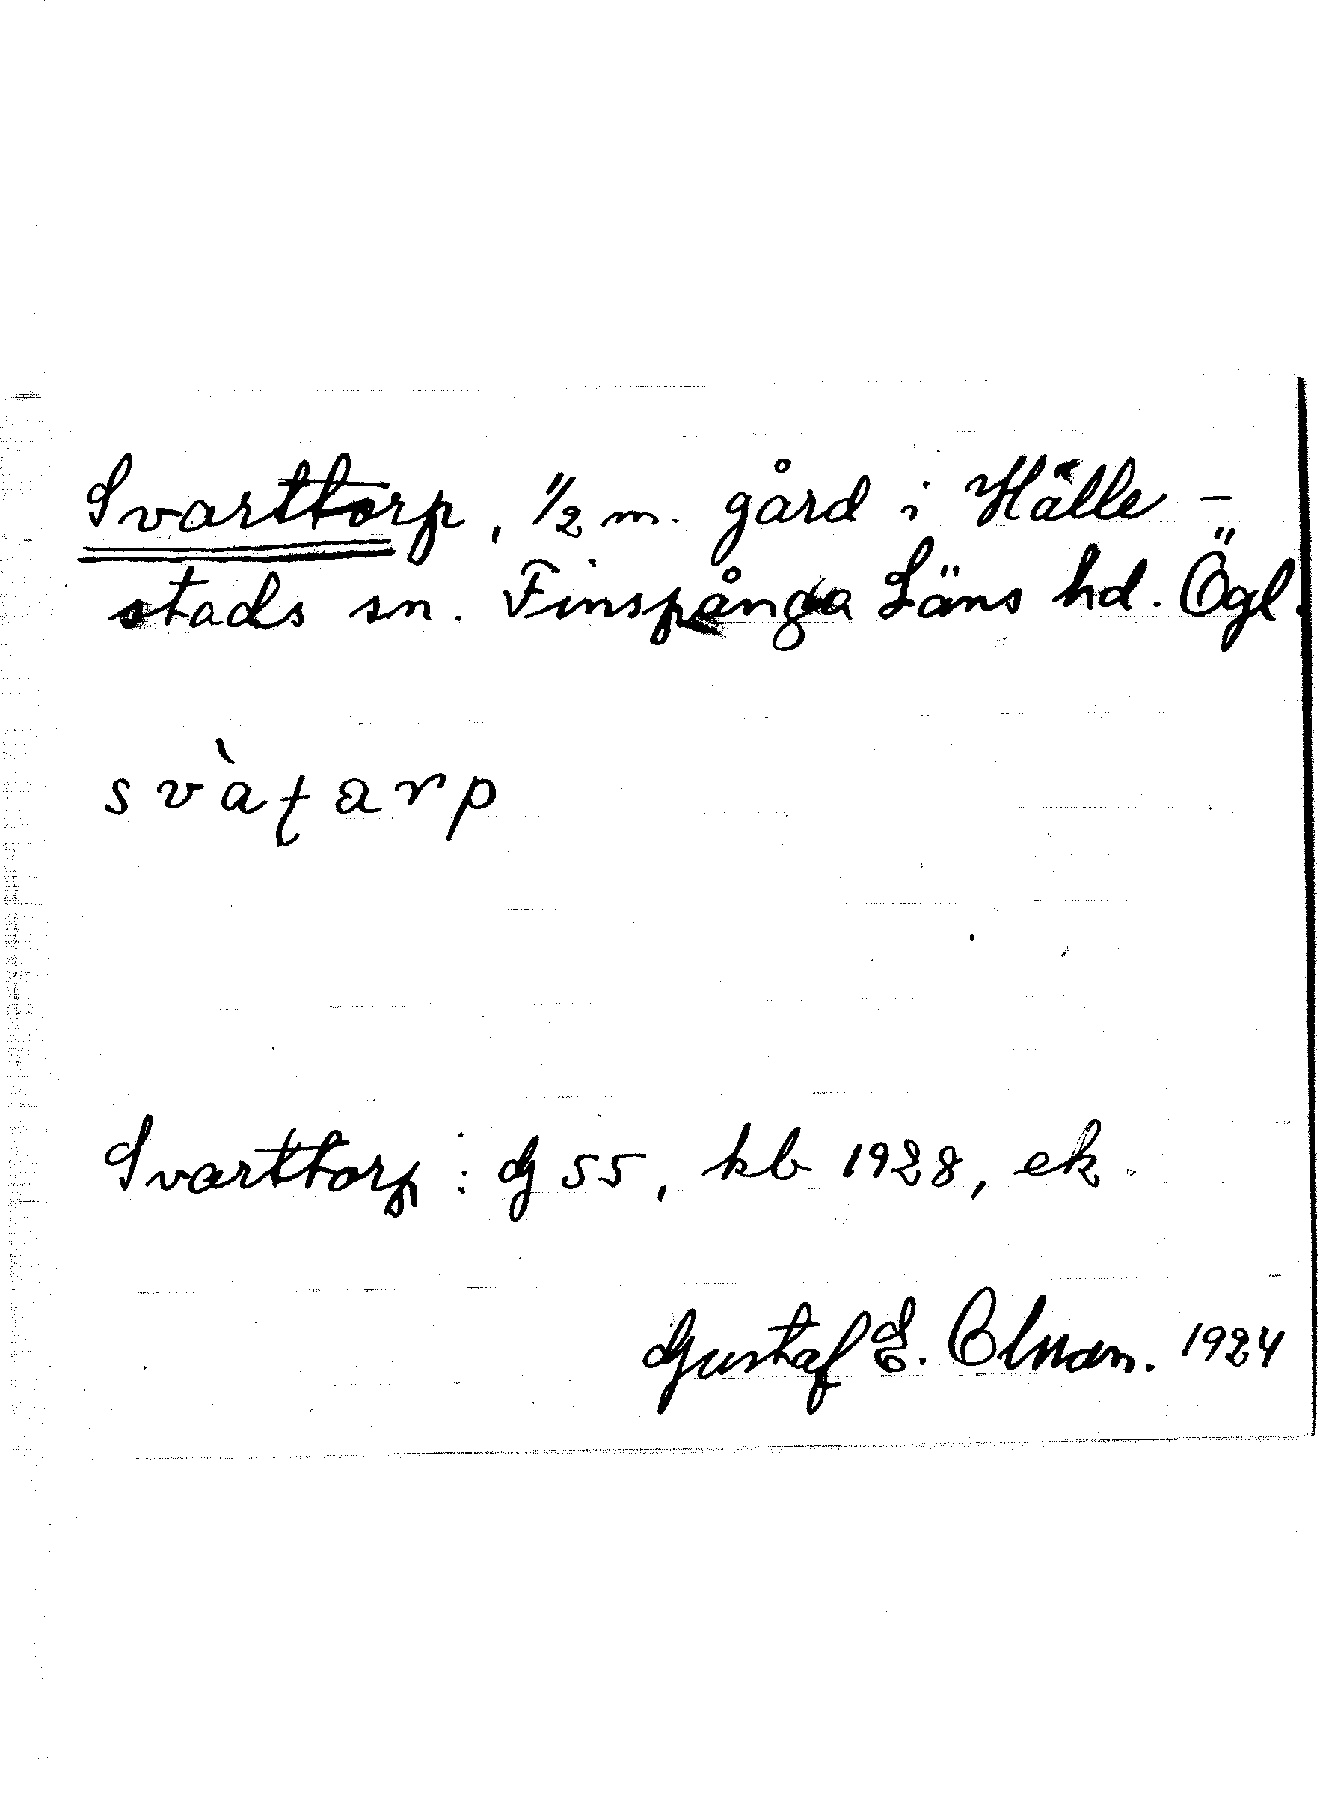 Svarttorp, 1/2 m. gård i Hälle-
stads sn. Finspånga Läns hd. Ögl.
svàʈarp
Svarttorp: dj 55, kb 1928, ek.
Gustaf E. 1924